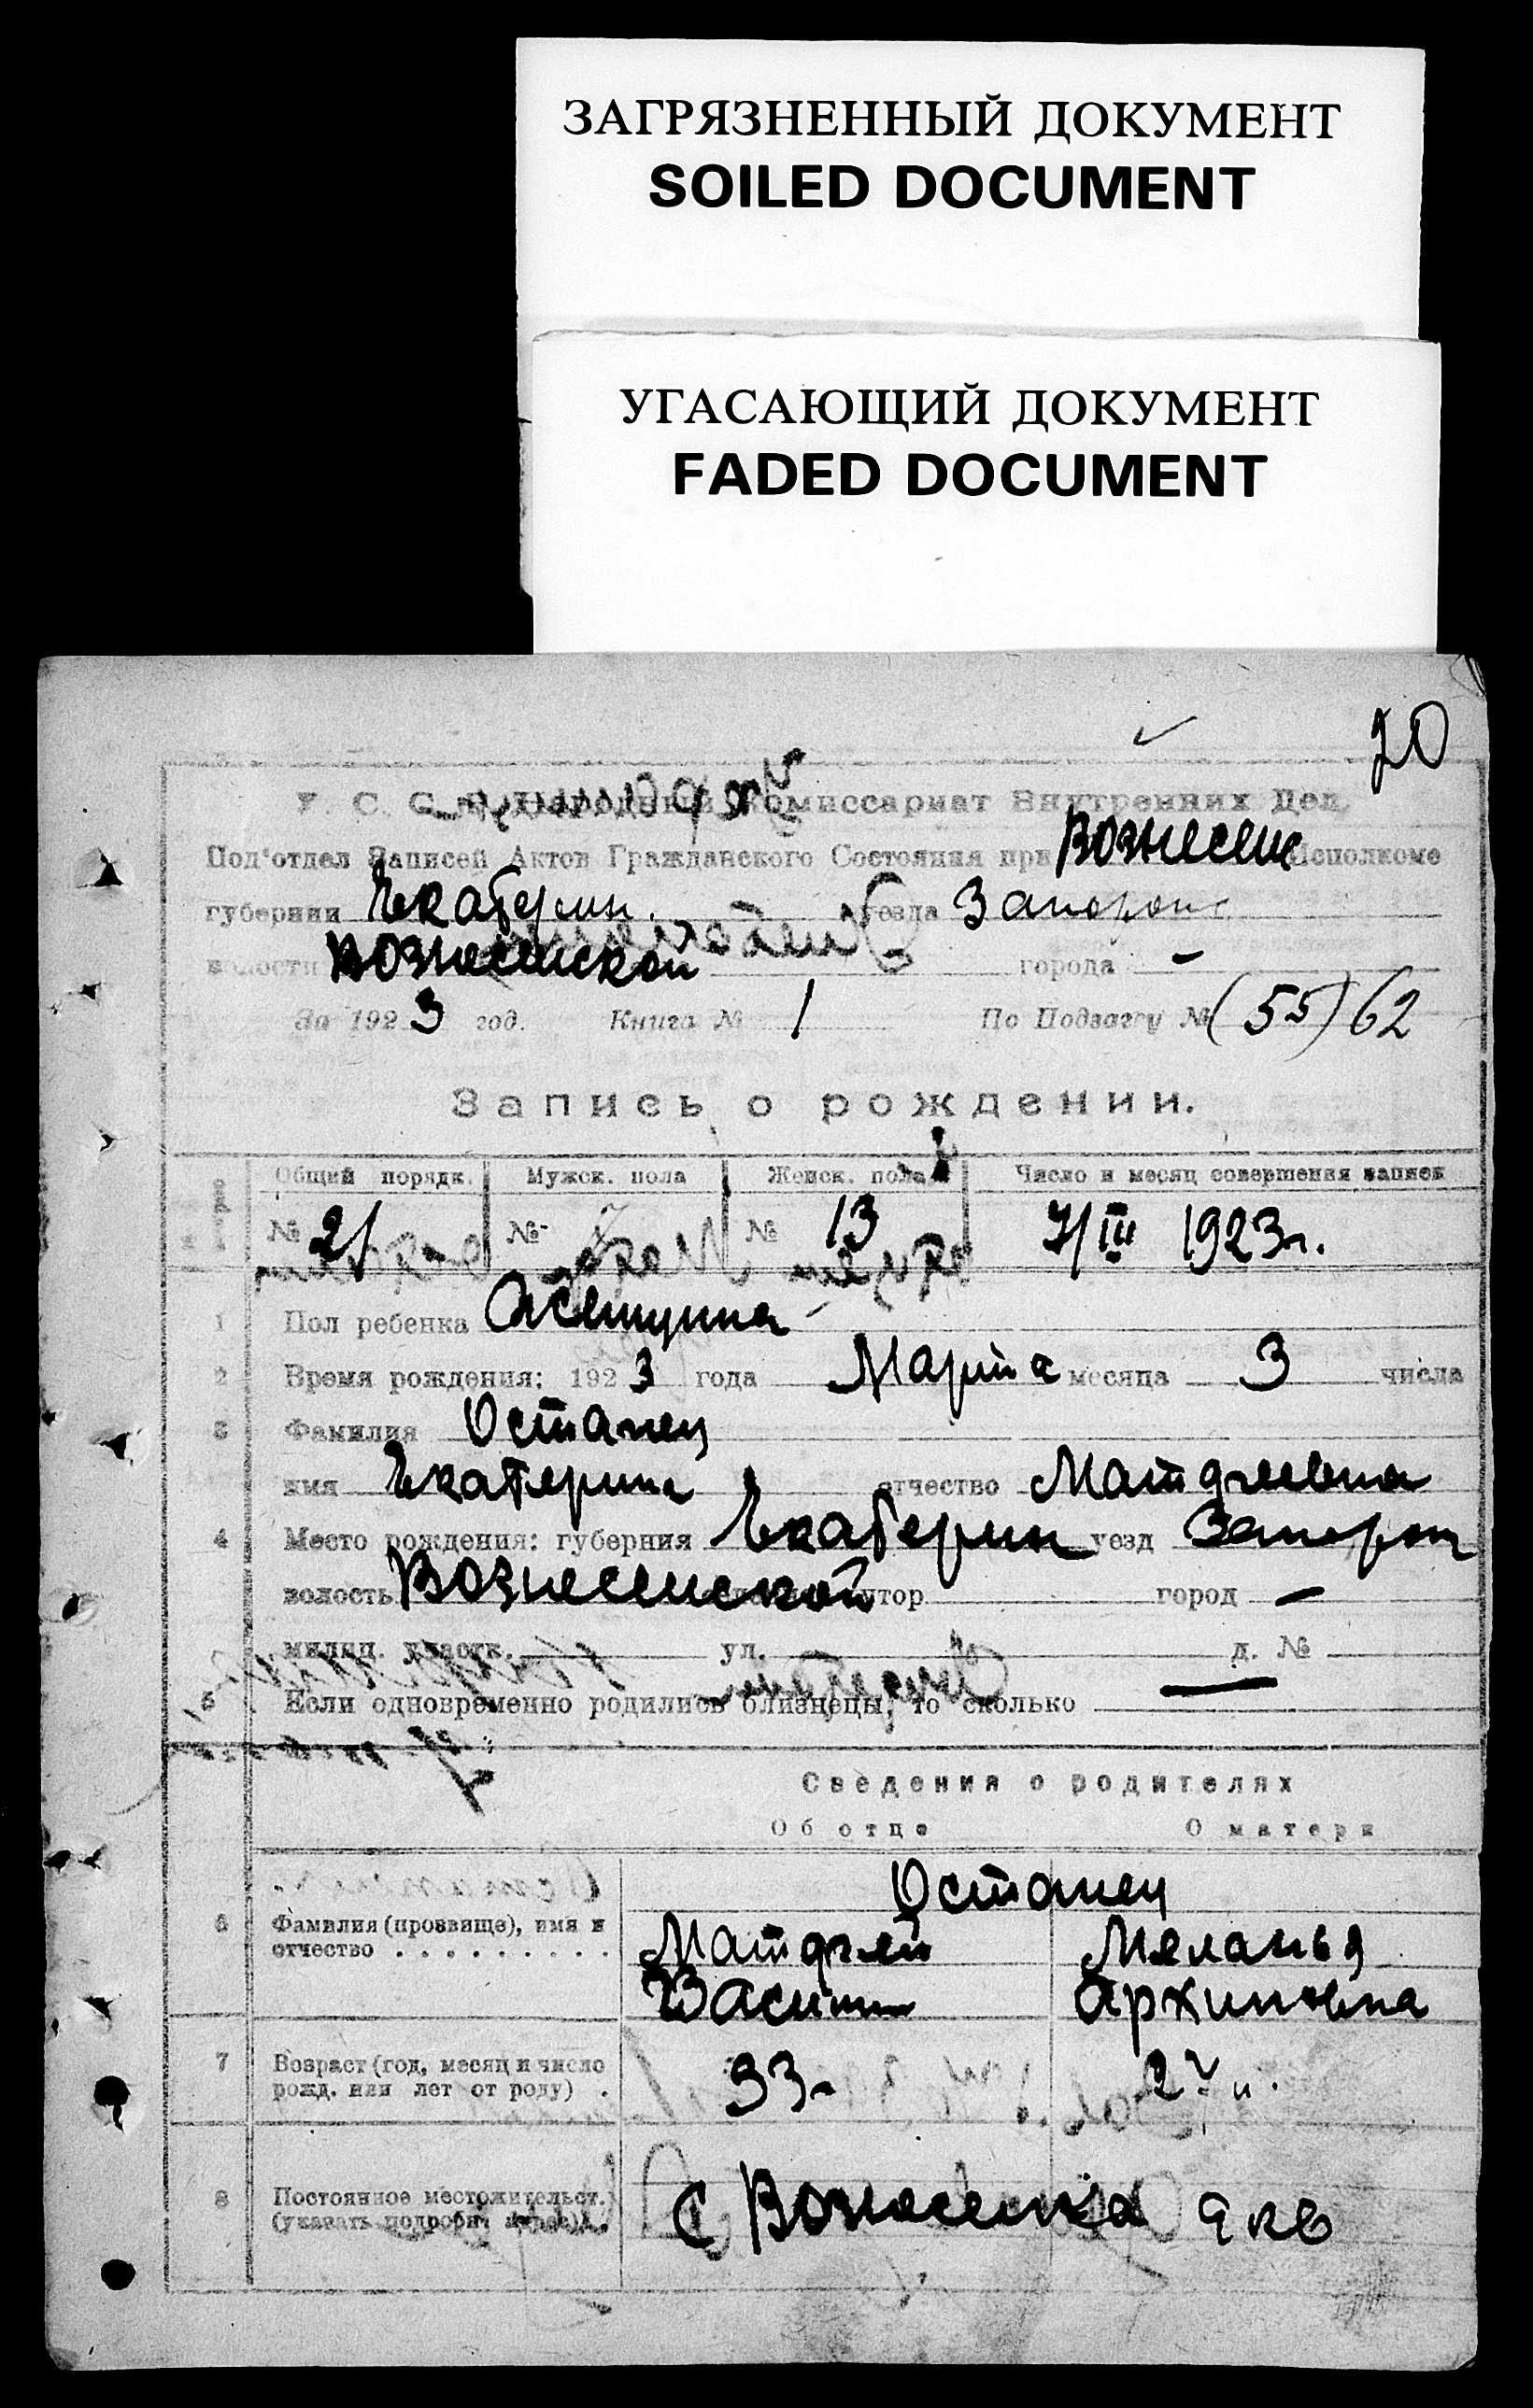 ЗАГРЯЗНЕННЫЙ ДОКУМЕНТ
SOILED DOCUMENT
УГАСАЮЩИЙ ДОКУМЕНТ
FADED DOCUMENT
20
У. С. С. Р. Народный Комиссариат Внутренних Дел.
Под'отдел Записей Актов Гражданского Состояния при Вознесенс Исполкоме
губернии Екатерин. уезда Запорож
волости Вознесенской города –
За 1923 год. Книга № 1 По Подзагсу № (55) 62
Запись о рождении.
Общий порядк. Мужск. пола Женск. пола Число и месяц совершения записи
№ 21 № № 13 7/III 1923г.
1 Пол ребенка Женщина
2 Время рождения: 1923 года Марта месяца 3 числа
3 Фамилия Остапец
имя Екатерина отчество Матфеевна
4 Место рождения: губерния Екатерин уезд Запорож
волость Вознесенской хутор город –
милиц. участк. ул. д. №
5 Если одновременно родились близнецы, то сколько —
Сведения о родителях
Об отце О матери
Остапец
6 Фамилия (прозвище), имя и
отчество . . . . . . . . . Матфей Меланья
Васил Архиповна
7 Возраст (год, месяц и число
рожд. или лет от роду) . 33
8 Постоянное местожительст.
(указать подробн. адрес) С Вознесенка 9 кв